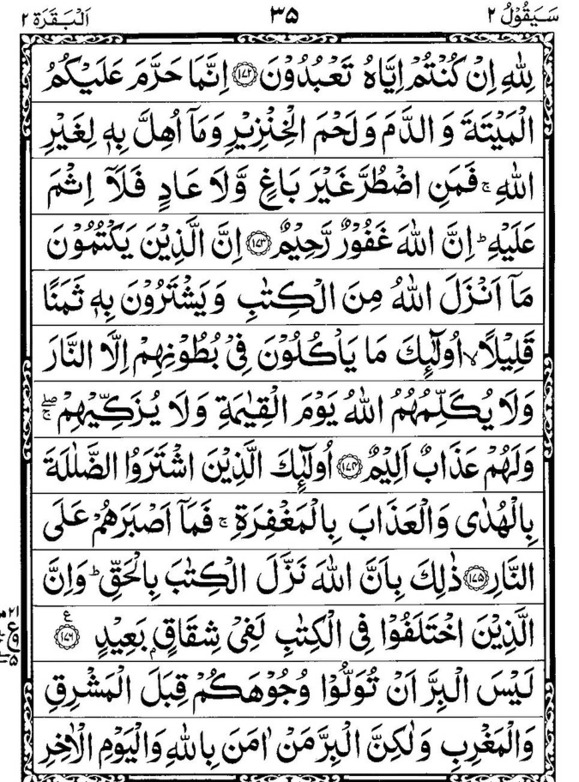 سَيَقُوۡلُ ٢ ٣٥ اَلۡبَقَرَة ٢
لِلّٰهِ اِنۡ كُنۡتُمۡ اِيَّاهُ تَعۡبُدُوۡنَ ﴿١٧٢﴾ اِنَّمَا حَرَّمَ عَلَيۡکُمُ
الۡمَيۡتَةَ وَ الدَّمَ وَ لَحۡمَ الۡخِنۡزِيۡرِ وَمَاۤ اُهِلَّ بِهٖ لِغَيۡرِ
اللّٰهِ ۚ فَمَنِ اضۡطُرَّ غَيۡرَ بَاغٍ وَّلَا عَادٍ فَلَاۤ اِثۡمَ
عَلَيۡهِ ؕ اِنَّ اللّٰهَ غَفُوۡرٌ رَّحِيۡمٌ ﴿١٧٣﴾ اِنَّ الَّذِيۡنَ يَكۡتُمُوۡنَ
مَآ اَنۡزَلَ اللّٰهُ مِنَ الۡکِتٰبِ وَ يَشۡتَرُوۡنَ بِهٖ ثَمَنًا
قَلِيۡلًا ۙ اُولٰٓٮِٕكَ مَا يَاۡكُلُوۡنَ فِىۡ بُطُوۡنِهِمۡ اِلَّا النَّارَ
وَلَا يُکَلِّمُهُمُ اللّٰهُ يَوۡمَ الۡقِيٰمَةِ وَلَا يُزَکِّيۡهِمۡ ۖۚ
وَلَهُمۡ عَذَابٌ اَلِيۡمٌ ﴿١٧٤﴾ اُولٰٓٮِٕكَ الَّذِيۡنَ اشۡتَرَوُا الضَّلٰلَةَ
بِالۡهُدٰى وَالۡعَذَابَ بِالۡمَغۡفِرَةِ ۚ فَمَآ اَصۡبَرَهُمۡ عَلَى
النَّارِ ﴿١٧٥﴾ ذٰلِكَ بِاَنَّ اللّٰهَ نَزَّلَ الۡکِتٰبَ بِالۡحَقِّ ؕ وَاِنَّ
الَّذِيۡنَ اخۡتَلَفُوۡا فِى الۡكِتٰبِ لَفِىۡ شِقَاقٍۢ بَعِيۡدٍ ﴿١٧٦﴾ ع
لَيۡسَ الۡبِرَّ اَنۡ تُوَلُّوۡا وُجُوۡهَكُمۡ قِبَلَ الۡمَشۡرِقِ
وَالۡمَغۡرِبِ وَلٰـكِنَّ الۡبِرَّ مَنۡ اٰمَنَ بِاللّٰهِ وَالۡيَوۡمِ الۡاٰخِرِ